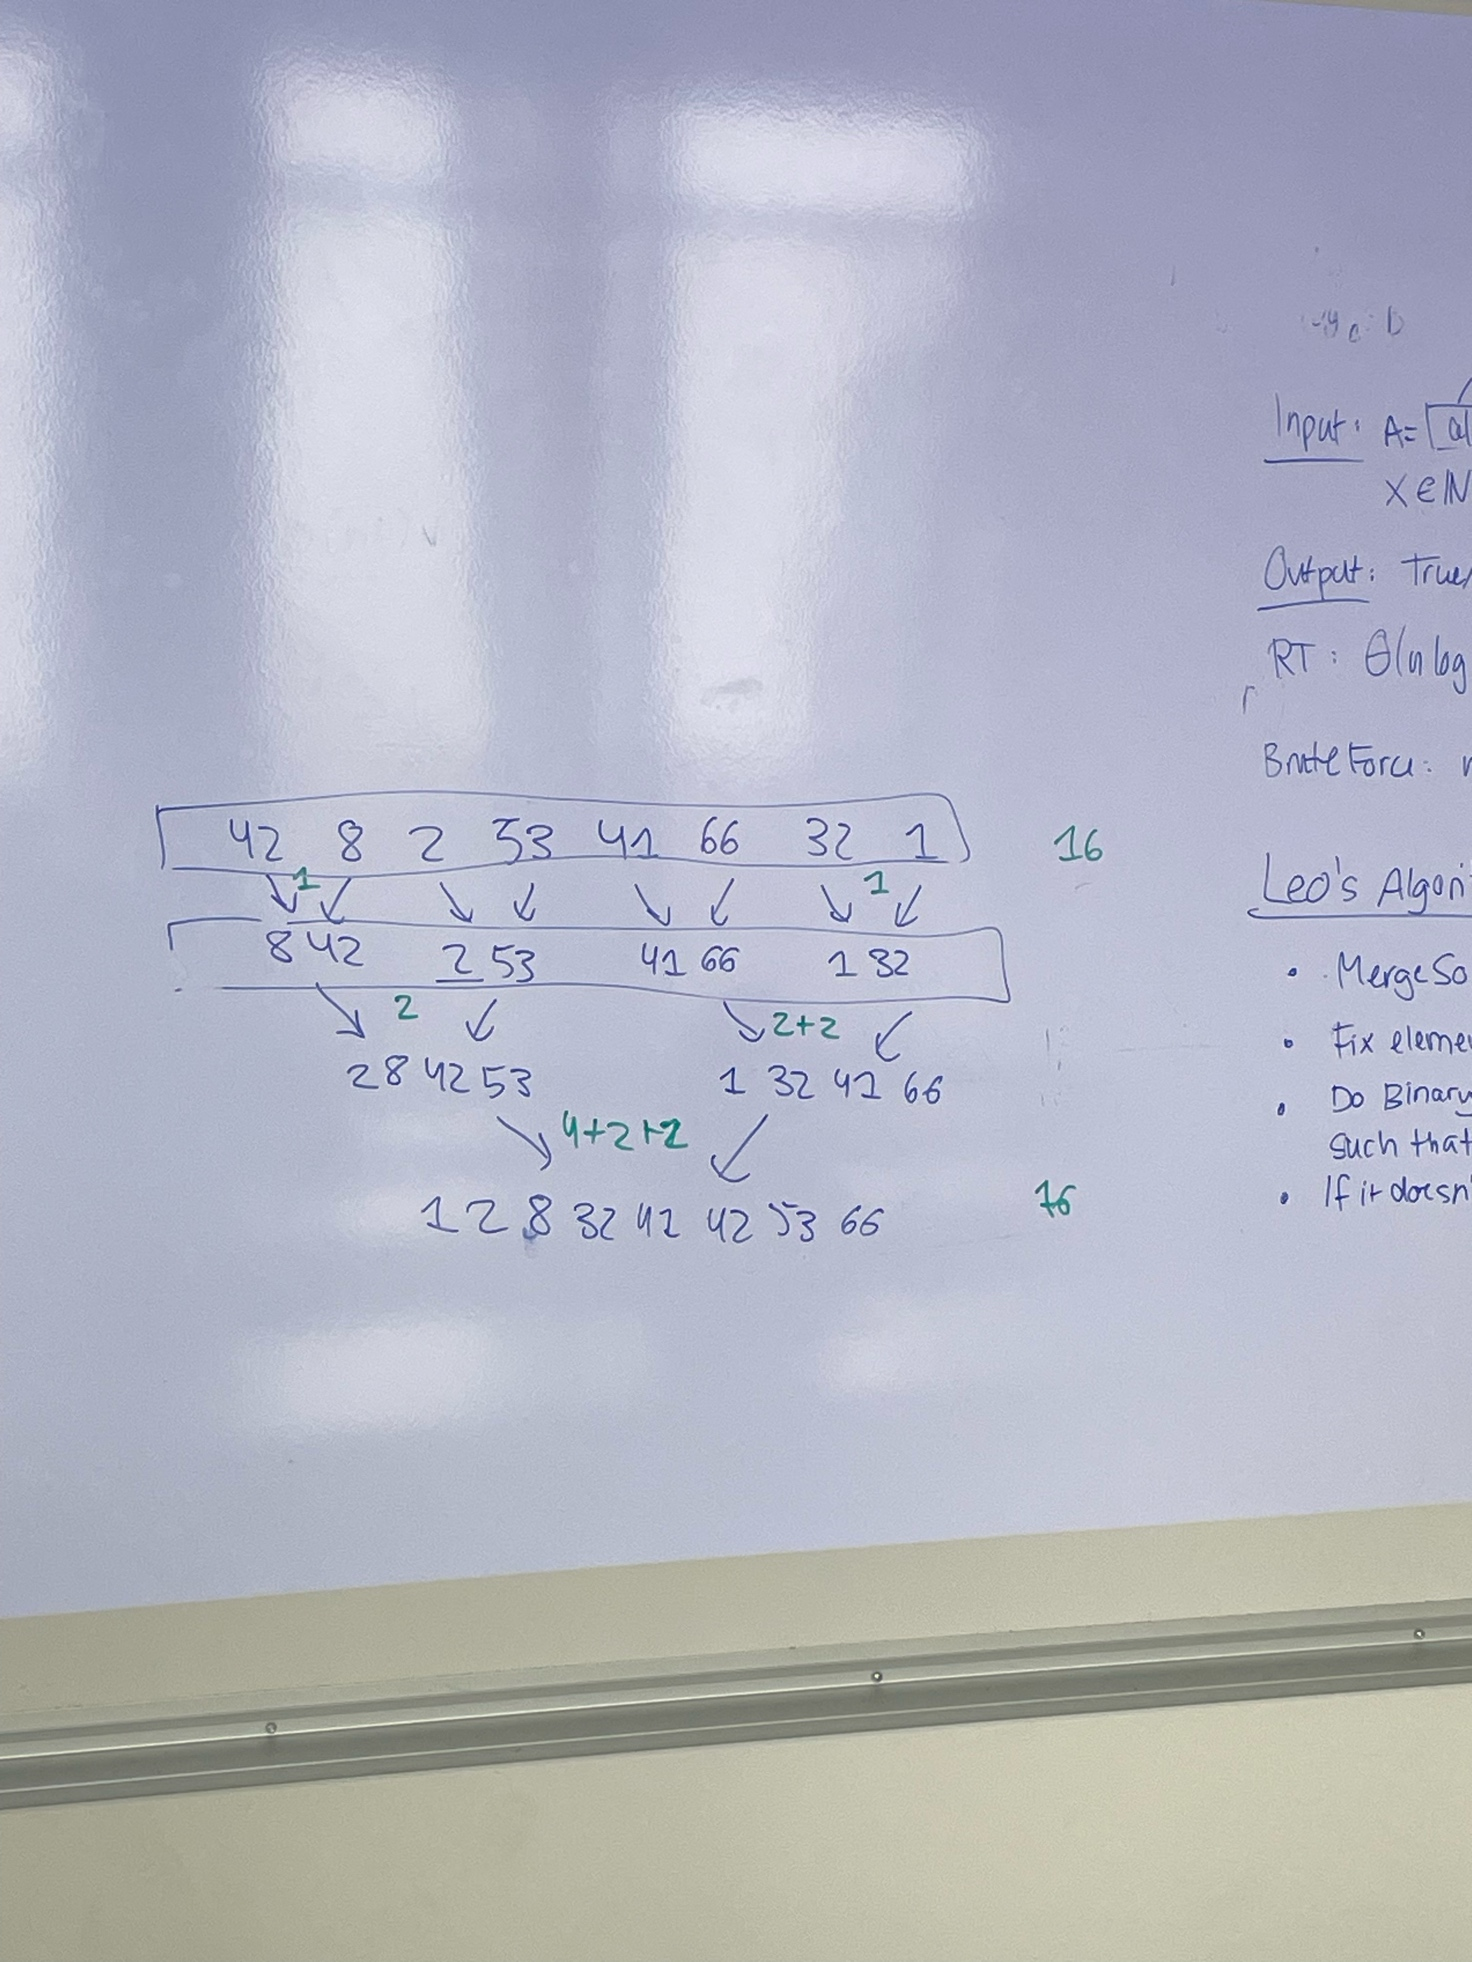 42 8 2 53 41 66 32 1 16
1 1
8 42 2 53 41 66 1 32
2 2+2
2 8 42 53 1 32 41 66
4+2+2
1 2 8 32 41 42 53 66 16
Input: A= [a1
X ∈ ℕ
Output: True/
RT: Θ(n log
Brute Force:
Leo's Algori
• MergeSo
• Fix eleme
• Do Binary
such that
• If it doesn'